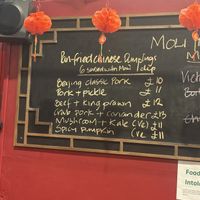 Pan-fried Chinese Dumplings
6 served with Mou dip
Beijing classic Pork £10
Pork + pickle £11
Beef + king prawn £12
Crab Pork + coriander £13
Mushroom + Kale (ve) £11
Spicy pumpkin (ve £11
MOLI
Food
Intol